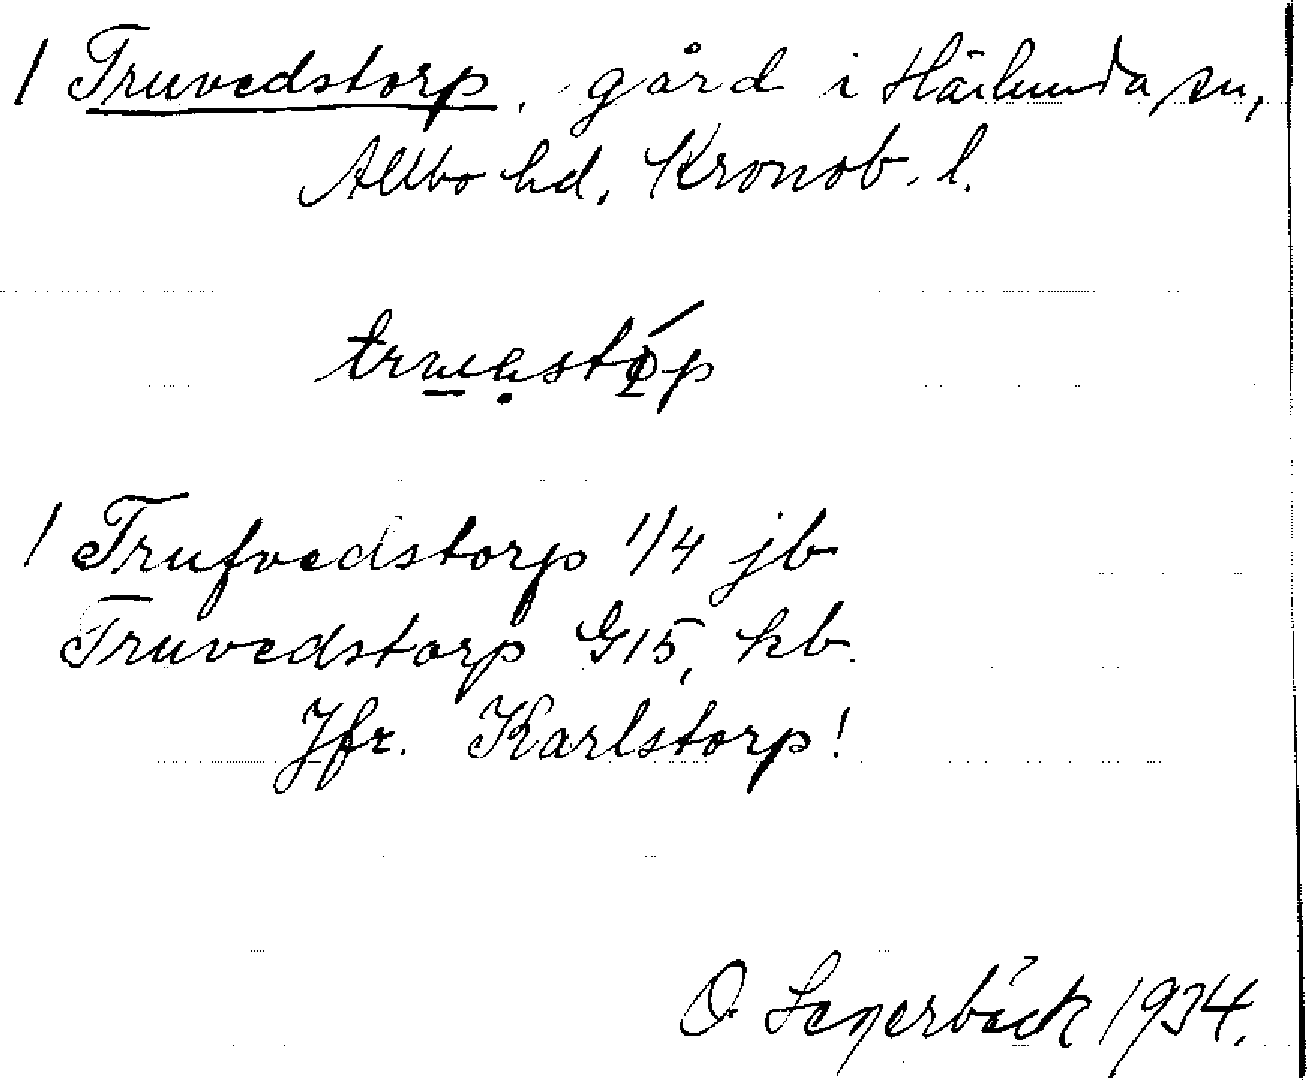 / Truvedstorp, gård i Härlunda sn,
Allbo hd, Kronob. l.
/ Trufvedstorp 1/4 jb
Truvedstorp G15, kb.
Jfr. Karlstorp!
O. Lagerbäck 1934.